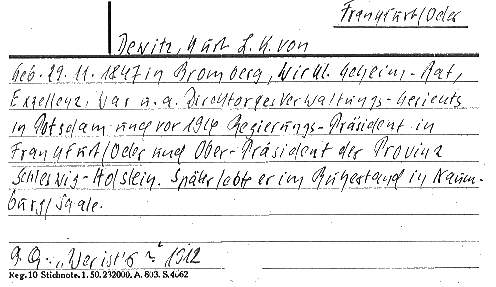 Frankfurt/Oder
Dewitz, Kurt L. K. von
Geb. 29. 11. 1847 in Bromberg, Wirkl. Geheim-Rat,
Exzellenz. War u. a. Direktor des Verwaltungs-Gerichts
in Potsdam und vor 1914 Regierungs-Präsident in
Frankfurt/Oder und Ober-Präsident der Provinz
Schleswig-Holstein. Später lebte er im Ruhestand in Naum-
burg/Saale.
"Wer ist's" 1912
Reg. 10 Stichnote. 1. 50. 232000. A. 803. S. 4062